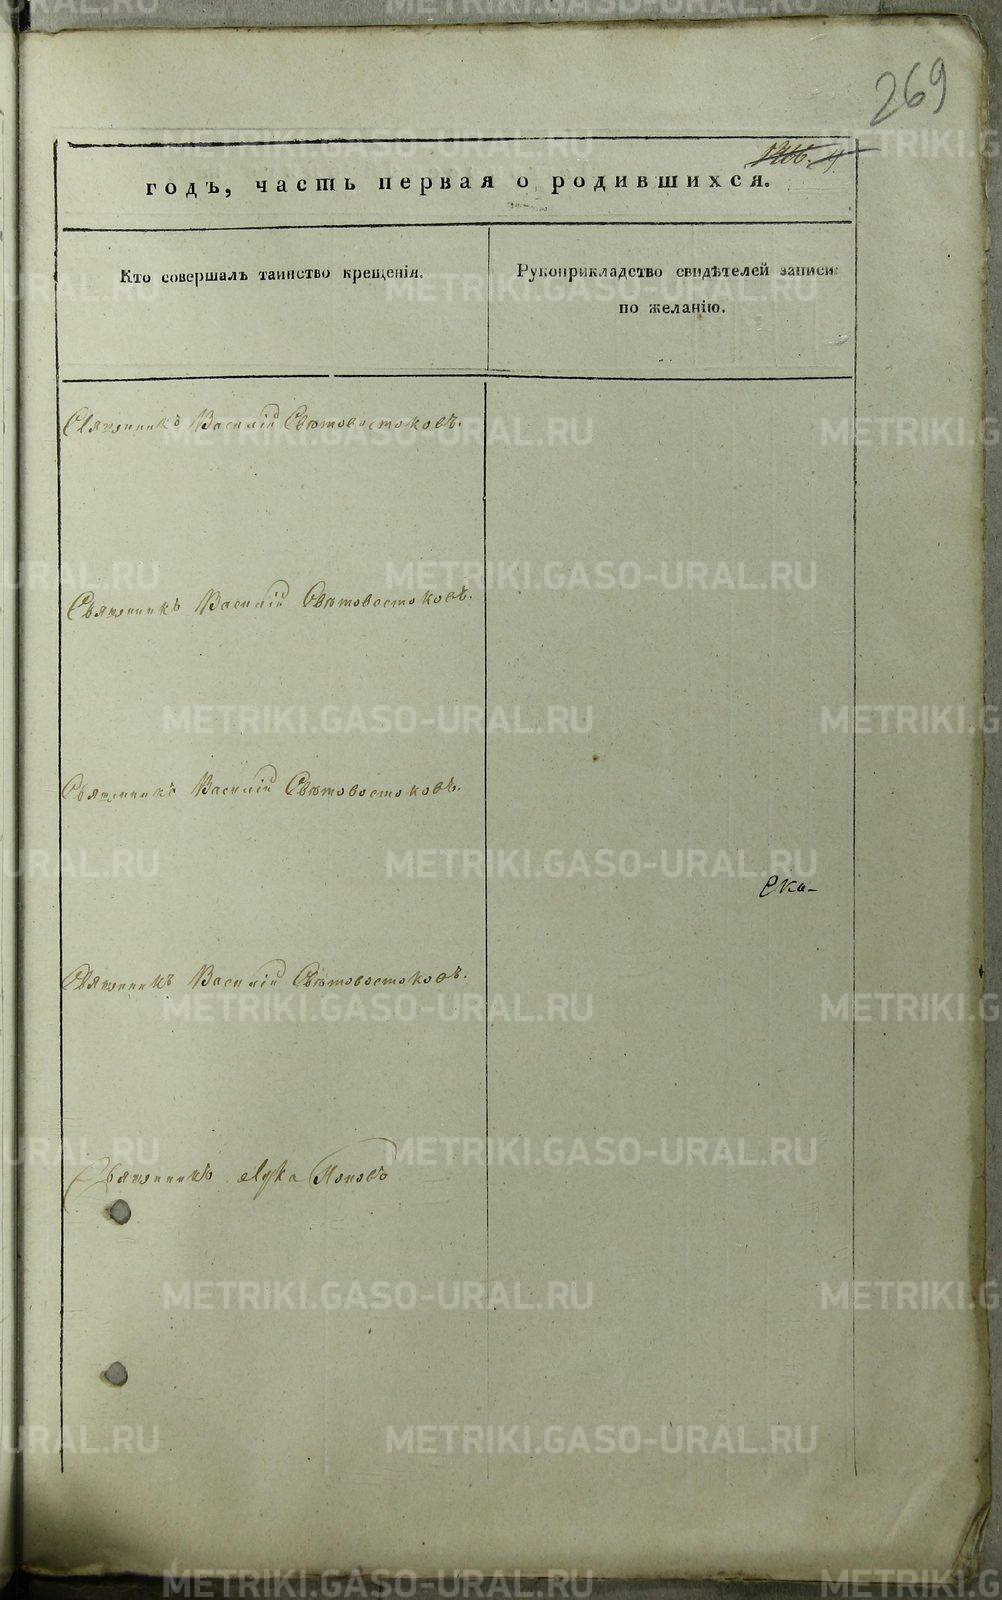 269
годъ, часть первая о родившихся.
Кто совершалъ таинство крещенія.
Рукоприкладство свидѣтелей записи
по желанію.
Священникъ Василій Свѣтовостоковъ.
Священникъ Василій Свѣтовостоковъ.
Священникъ Василій Свѣтовостоковъ.
Ека-
Священникъ Василій Свѣтовостоковъ.
Священникъ Лука Поповъ
METRIKI.GASO-URAL.RU